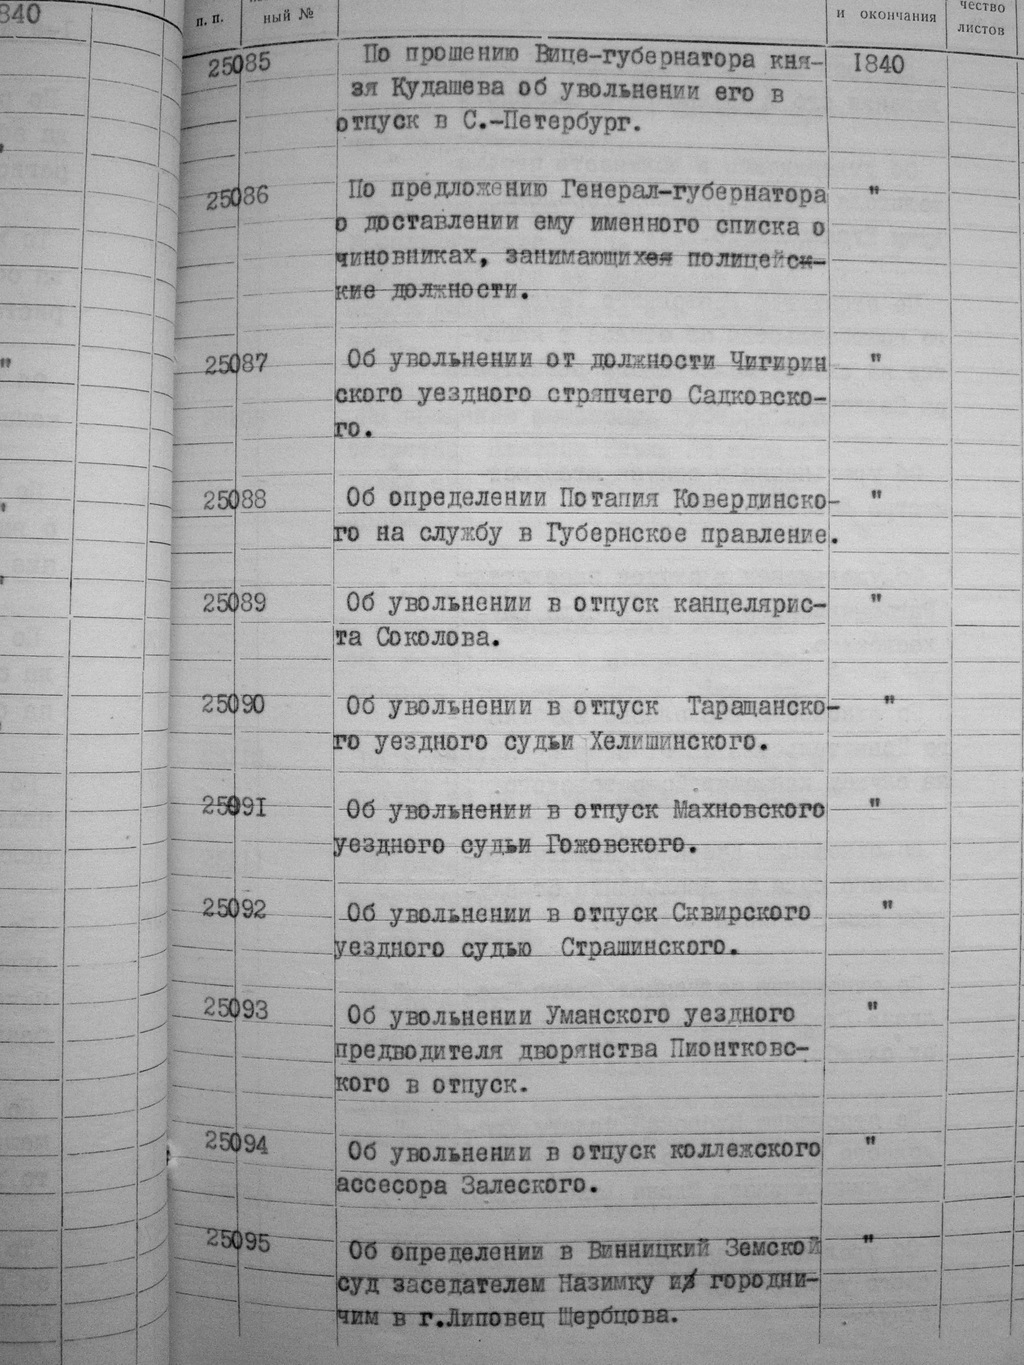 840
п. п.
ный №
и окончания
чество
листов
25085 По прошению Вице-губернатора кня- 1840
зя Кудашева об увольнении его в
отпуск в С.-Петербург.
25086 По предложению Генерал-губернатора "
о доставлении ему именного списка о
чиновниках, занимающихся полицейс-
кие должности.
25087 Об увольнении от должности Чигирин "
ского уездного стряпчего Садковско-
го.
25088 Об определении Потапия Ковердинско- "
го на службу в Губернское правление.
25089 Об увольнении в отпуск канцелярис- "
та Соколова.
25090 Об увольнении в отпуск Таращанско- "
го уездного судьи Хелишинского.
25091 Об увольнении в отпуск Махновского "
уездного судьи Гожовского.
25092 Об увольнении в отпуск Сквирского "
уездного судью Страшинского.
25093 Об увольнении Уманского уездного "
предводителя дворянства Пионтковс-
кого в отпуск.
25094 Об увольнении в отпуск коллежского "
ассесора Залеского.
25095 Об определении в Винницкий Земской "
суд заседателем Назимку и городни-
чим в г.Липовец Щербцова.